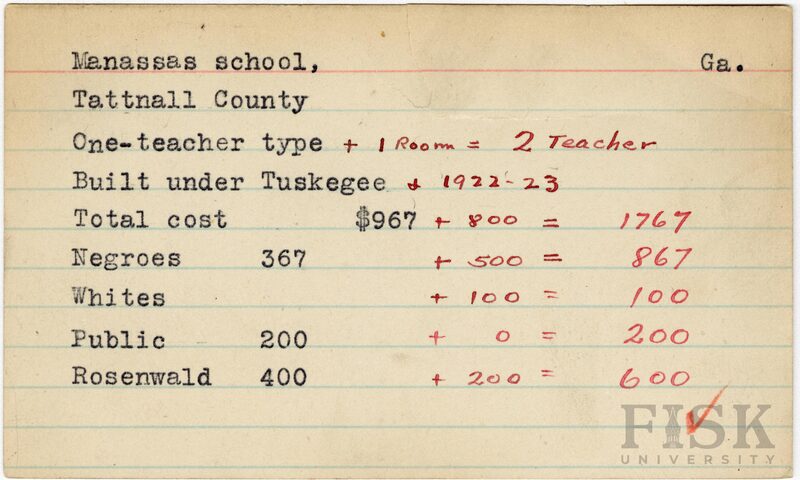 Manassas school, Ga.
Tattnall County
One-teacher type + 1 Room = 2 Teacher
Built under Tuskegee + 1922-23
Total cost $967 + 800 = 1767
Negroes 367 + 500 = 867
Whites + 100 = 100
Public 200 + 0 = 200
Rosenwald 400 + 200 = 600
FISK
UNIVERSITY